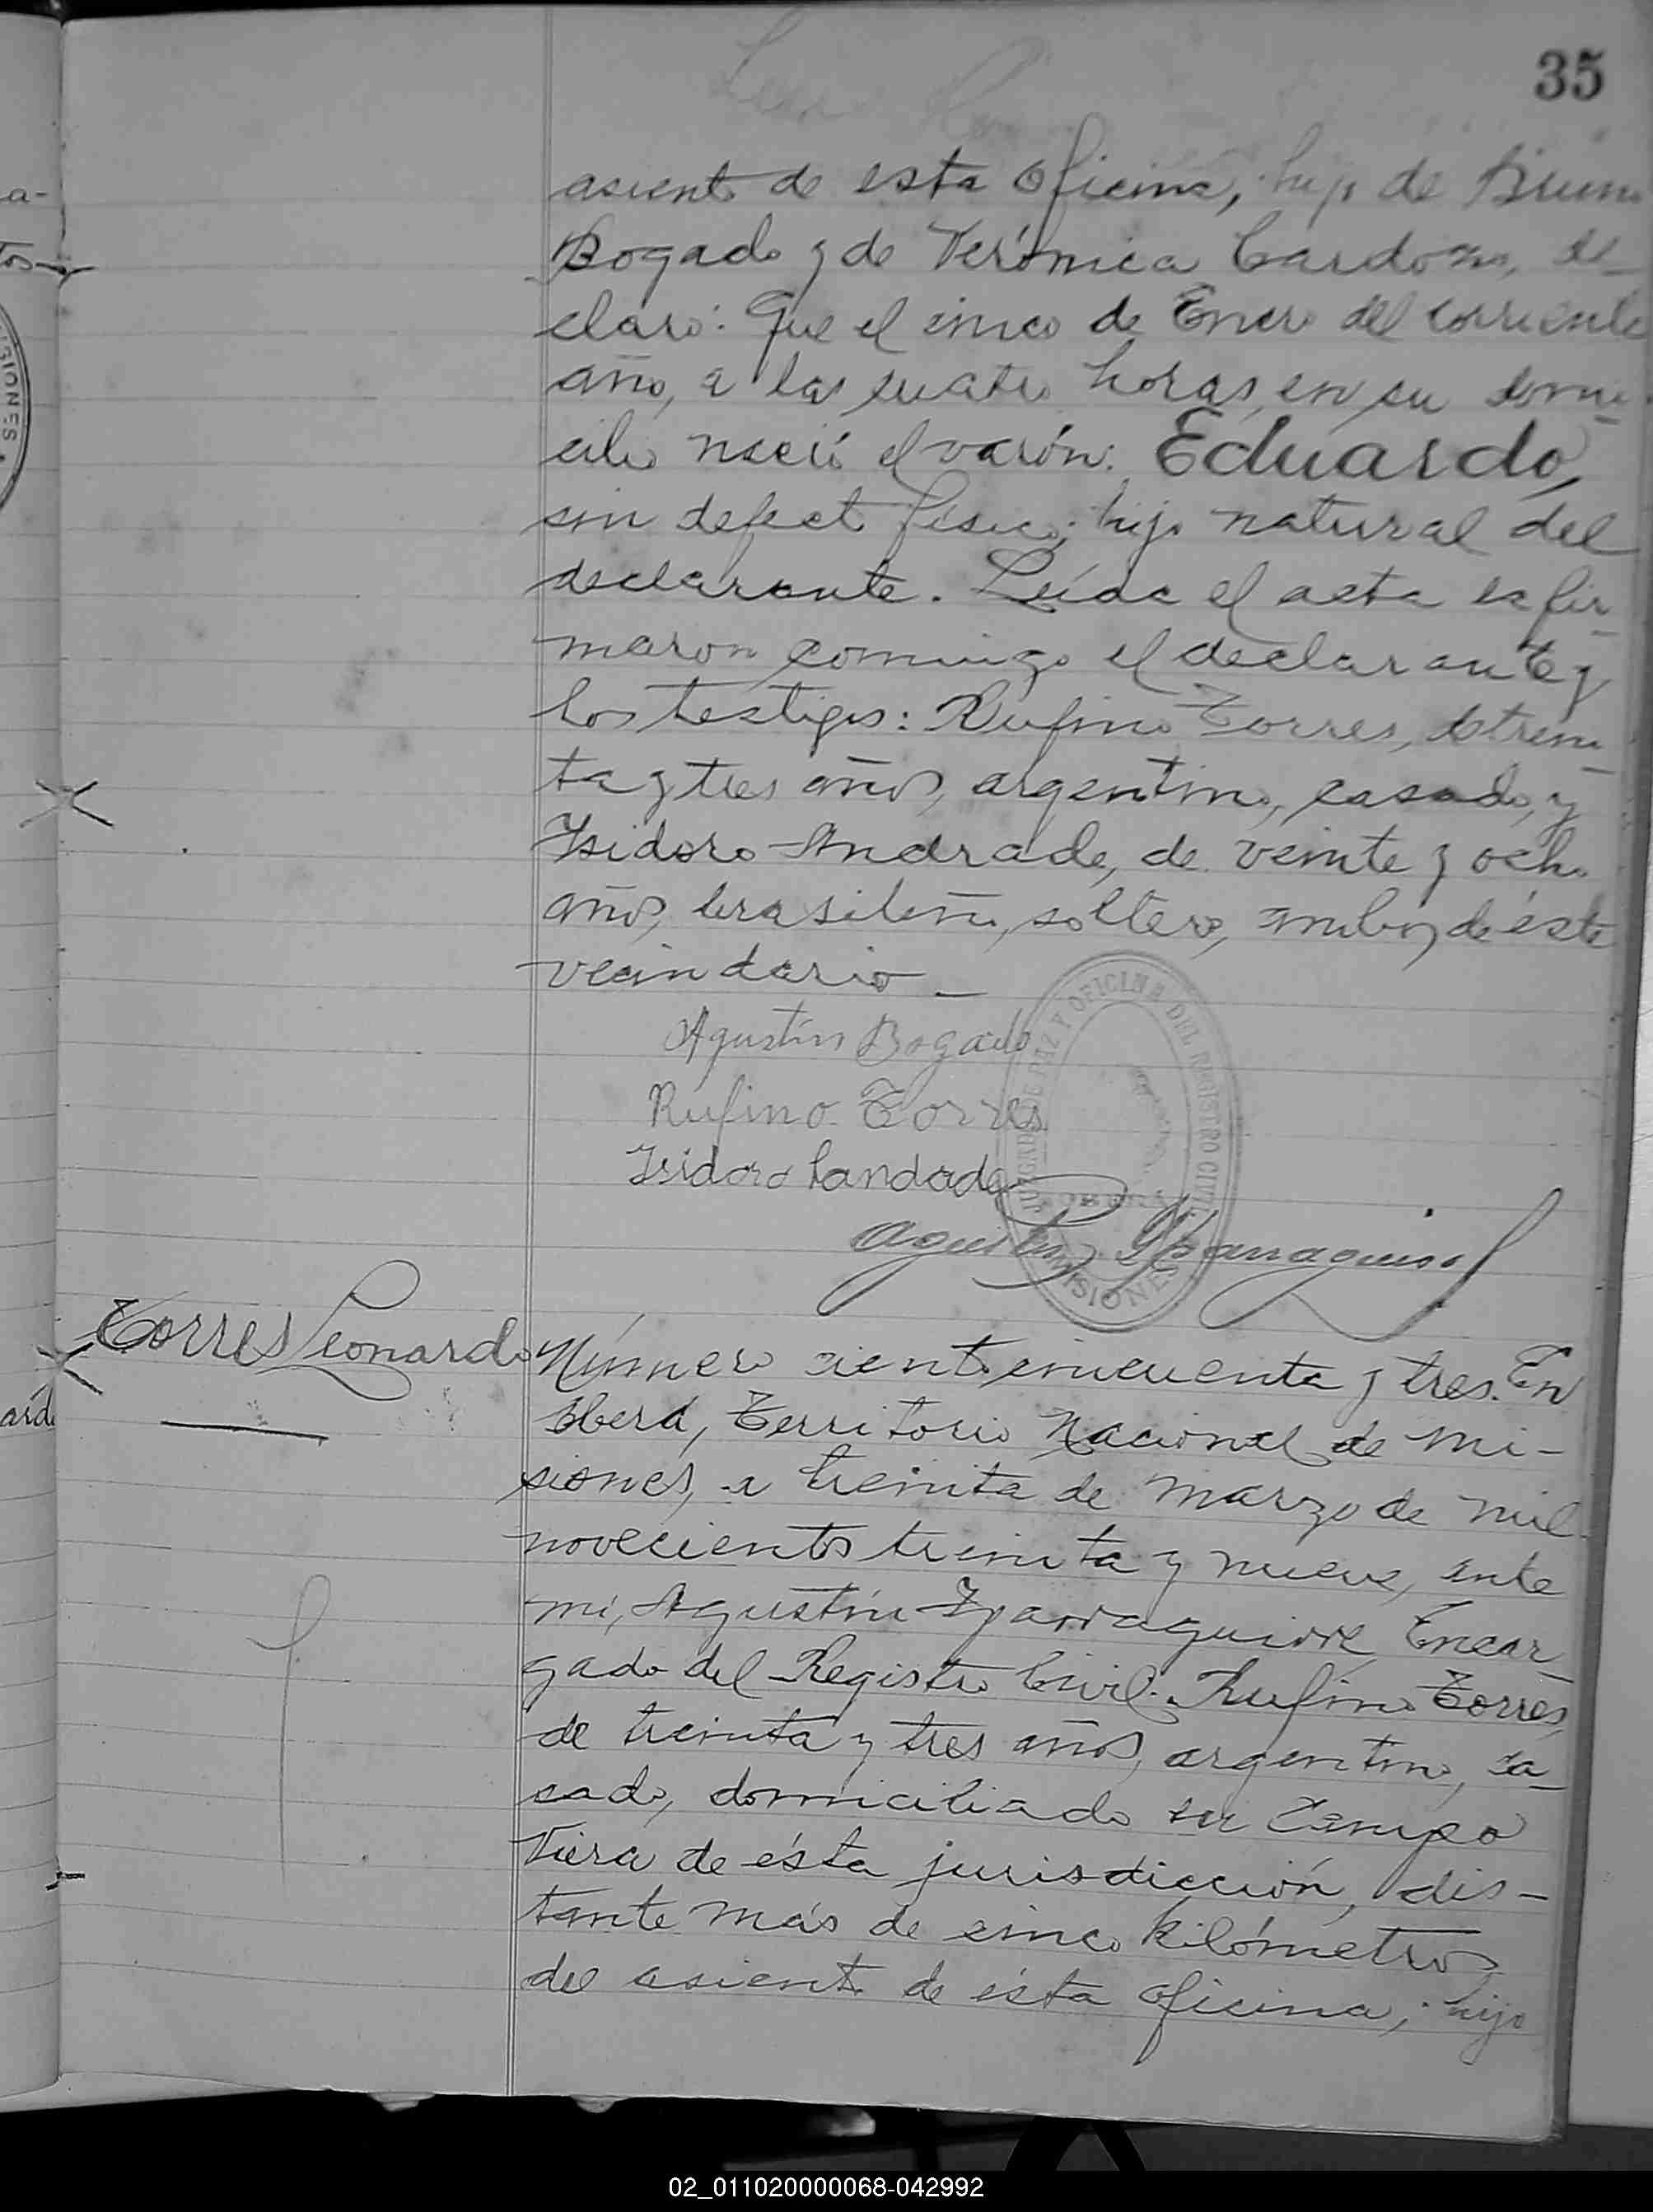 35
asiento de esta Oficina, hijo de Bruno
Bogado y de Verónica Cardozo, de-
claró: Que el cinco de Enero del corriente
año, a las cuatro horas, en su domi-
cilio nació el varón: Eduardo,
sin defecto físico; hijo natural del
declarante. Leída el acta la fir-
maron conmigo el declarante y
los testigos: Rufino Torres, de trein-
ta y tres años, argentino, casado, y
Isidoro Andrade, de veinte y ocho
años, brasileño, soltero, ambos de éste
vecindario —
Agustín Bogado
Rufino Torres
Isidoro Landade
JUZGADO DE PAZ Y OFICINA DEL REGISTRO CIVIL
MISIONES
Agustín Yparraguirre
Torres Leonardo
Número ciento cincuenta y tres. En
Oberá, Territorio Nacional de Mi-
siones, a treinta de Marzo de mil
novecientos treinta y nueve, ante
mi, Agustín Yparraguirre Encar-
gado del Registro Civil. Rufino Torres,
de treinta y tres años, argentino, ca-
sado, domiciliado en Campo
Viera de ésta jurisdicción, dis-
tante más de cinco kilómetros
del asiento de ésta oficina; hijo
02_011020000068-042992